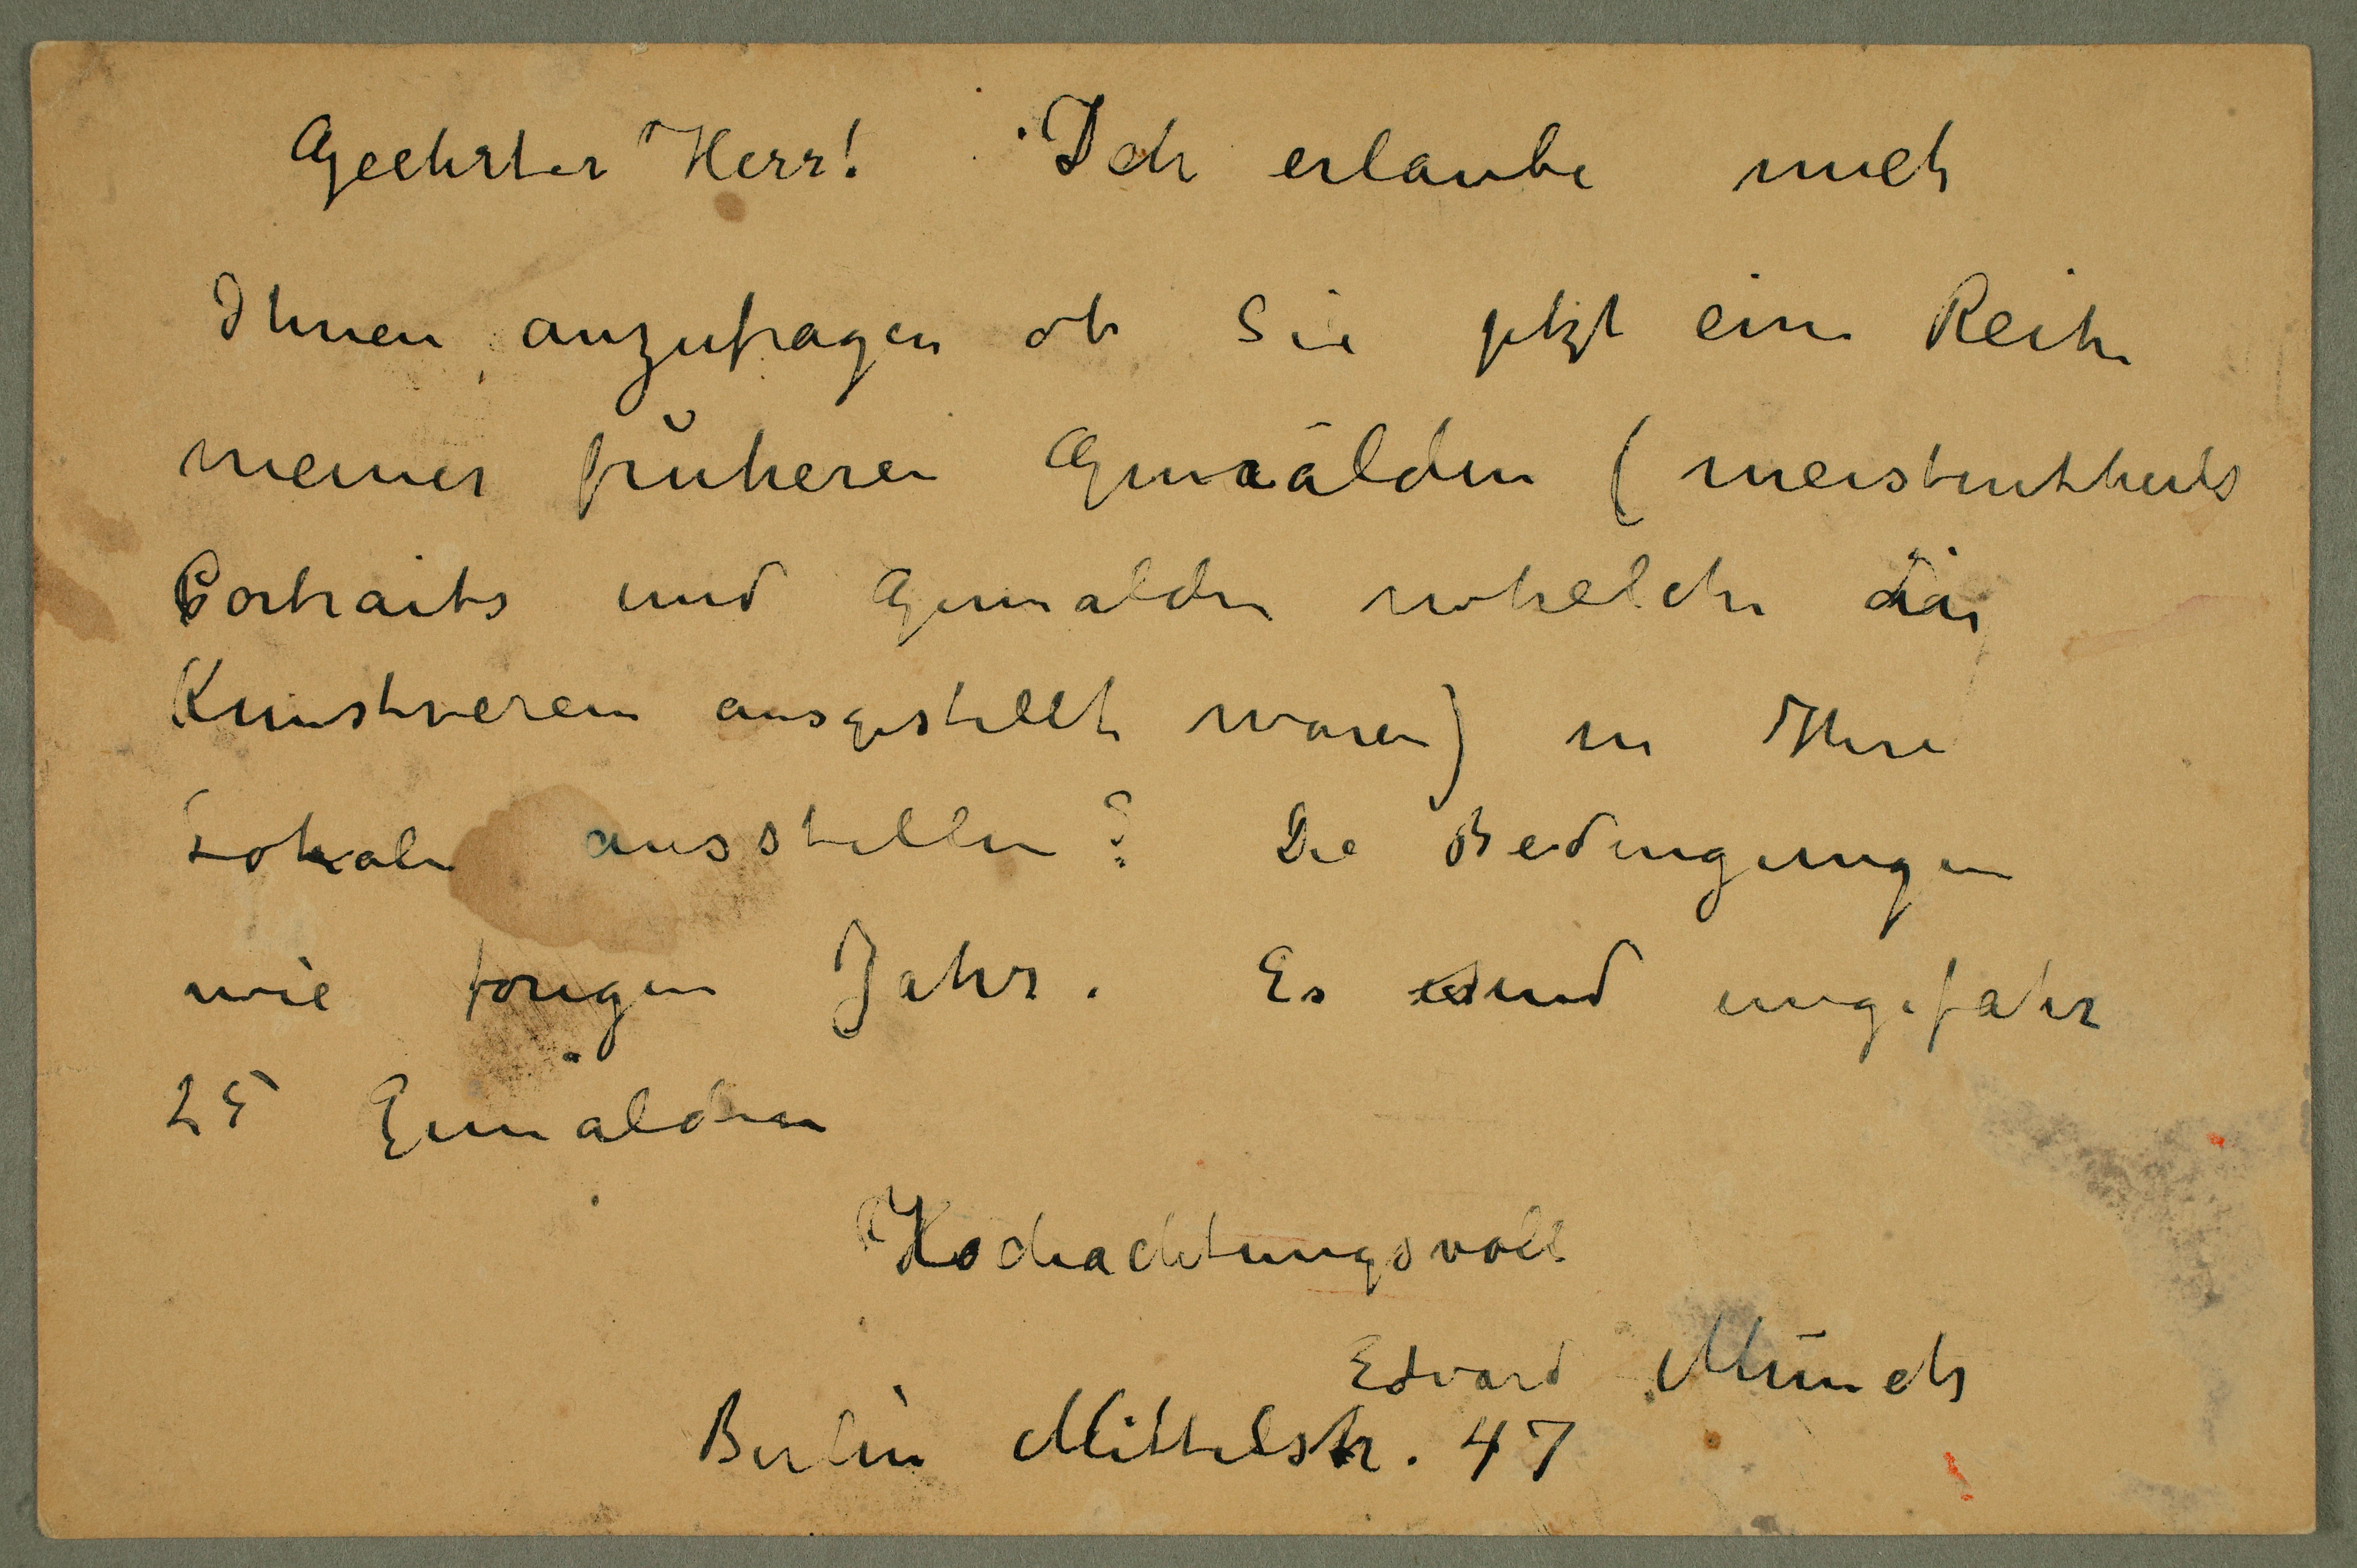 Geehrter Herr! Ich erlaube mich
Ihnen anzufragen ob Sie jetzt eine Reihe
meiner früheren Gemälden (meistentheils
Portraits und Gemalden wohelche
Kunstverein ausgestellt waren) in Ihre
Lokalen ausstellen? Die Bedingungen
wie forigen Jahr. Es sind ungefahr
25 Gemälden
Hochachtungsvoll
Edvard Munch
Berlin Mittelstr. 47